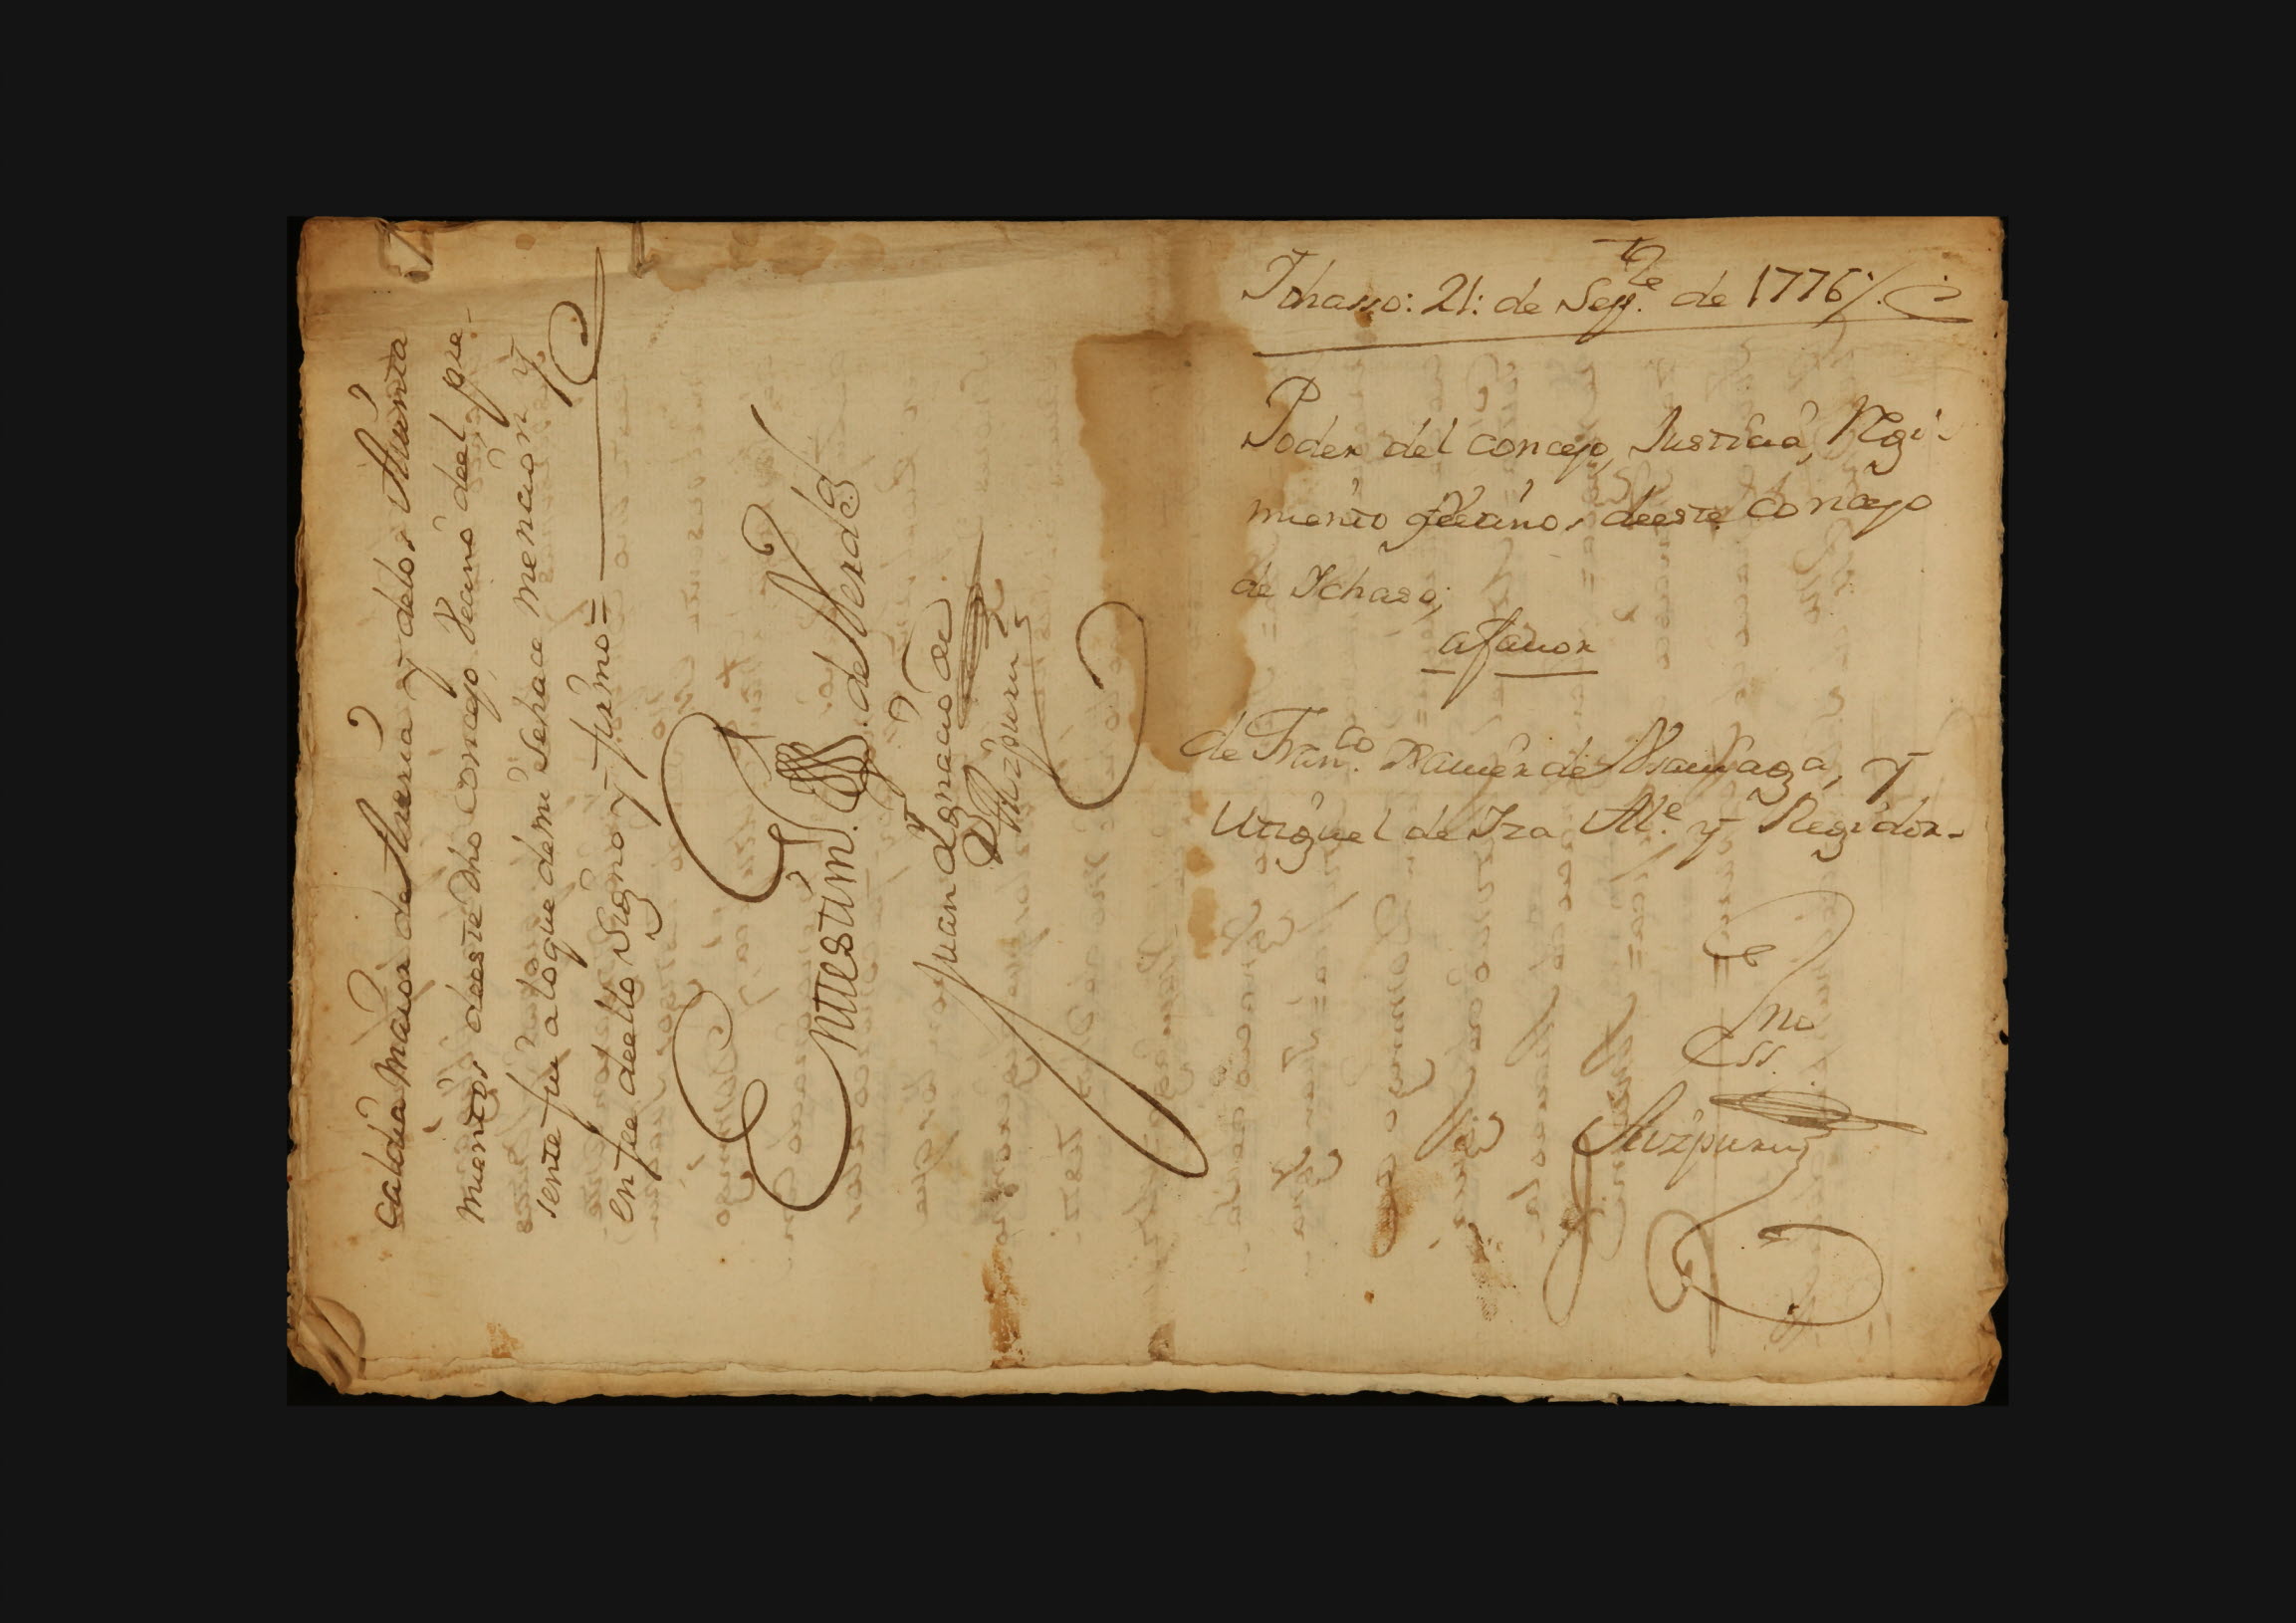 caldia maior de Areria y delos Aiunta
mientos deeste dho concejo, Vecino deel pre-
sente fui alo que demi sehace mencion y
en fee deello signo y firmo =
En testim.º de Verdad
Juan Ignacio de
Aizpuru
Ichasso: 21: de Sep.te de 1776
Poder del concejo, Justicia, Regi-
miento y Vecinos deeste concejo
de Ichaso;
a favor
de Fran.co Xavier de, y
Miguel de Iza Al.e y Regidor.
Ess.no
Aizpuru